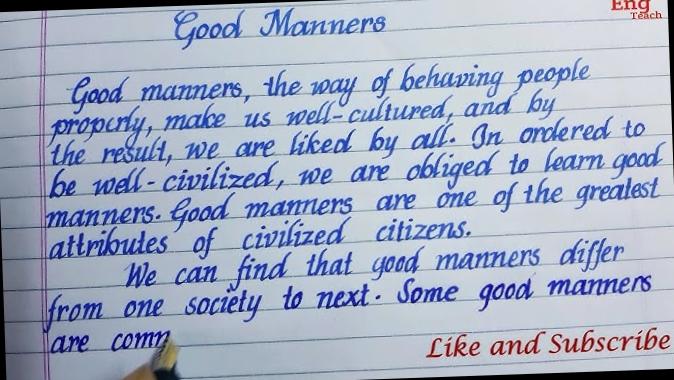 Eng
Teach
Good Manners
Good manners, the way of behaving people
properly, make us well-cultured, and by
the result, we are liked by all. In ordered to
be well-civilized, we are obliged to learn good
manners. Good manners are one of the greatest
attributes of civilized citizens.
We can find that good manners differ
from one society to next. Some good manners
are comm
Like and Subscribe